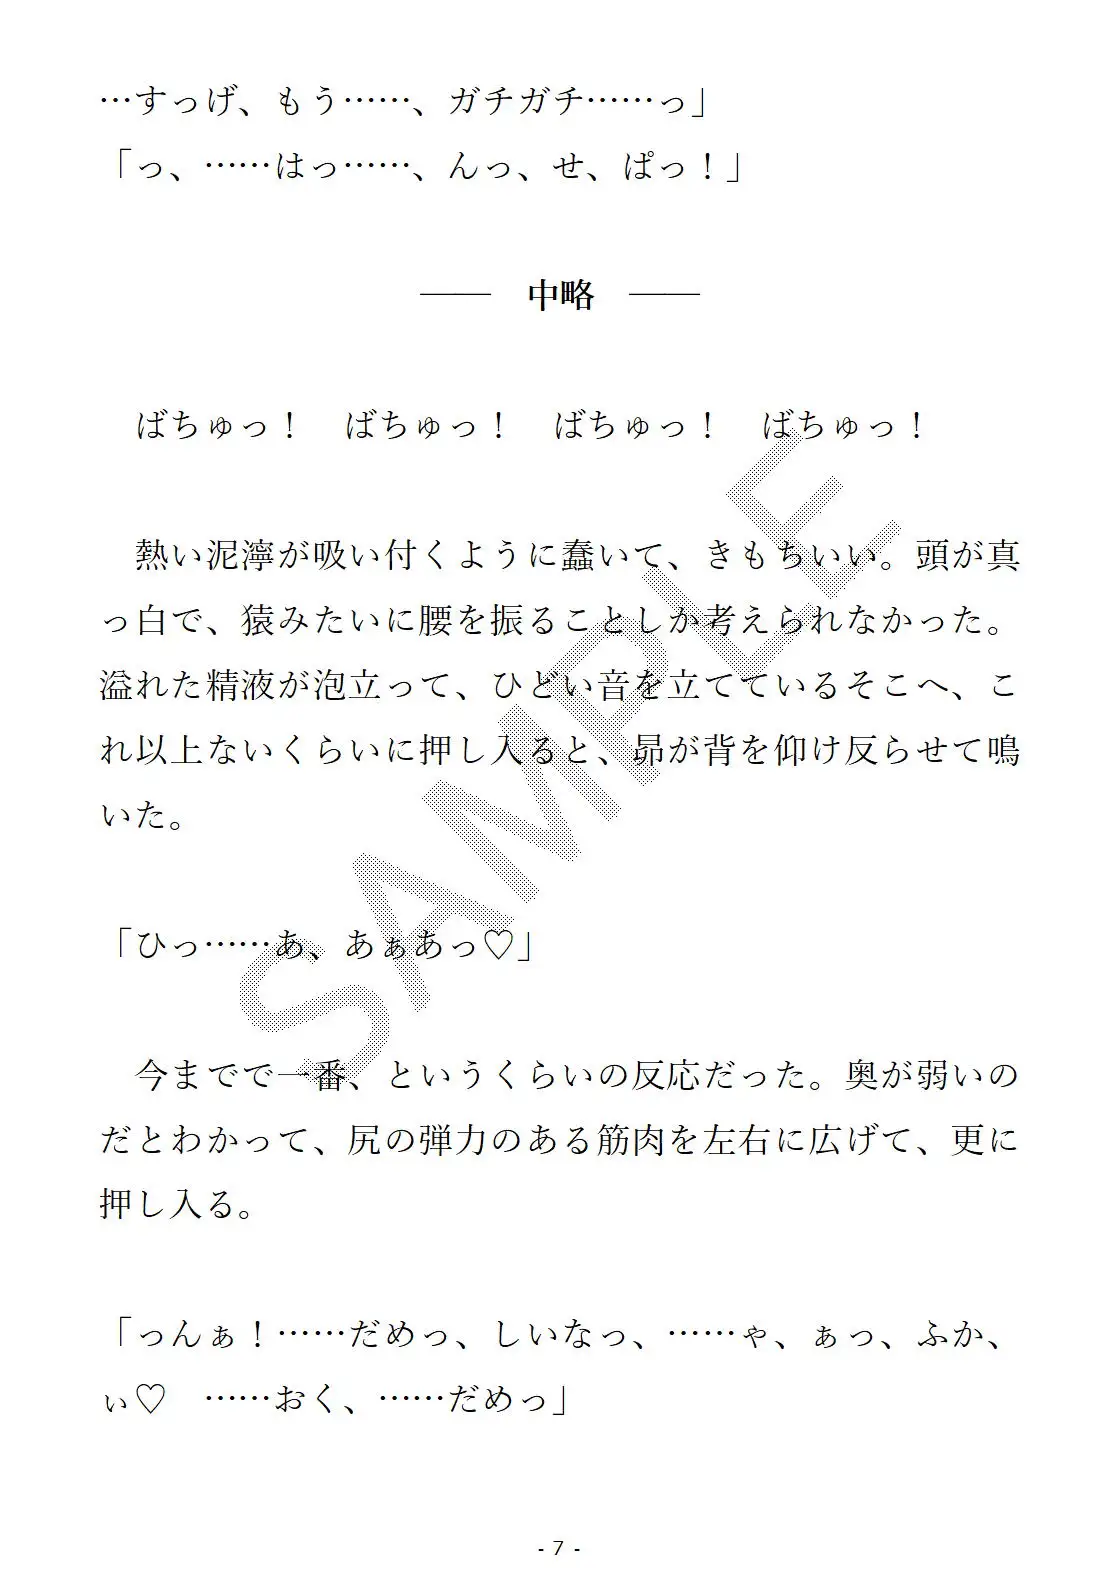 …すっげ、もう……、ガチガチ……っ」
「っ、……はっ……、んっ、せ、ぱっ！」
―― 中略 ――
ばちゅっ！　ばちゅっ！　ばちゅっ！　ばちゅっ！
熱い泥濘が吸い付くように蠢いて、きもちいい。頭が真
っ白で、猿みたいに腰を振ることしか考えられなかった。
溢れた精液が泡立って、ひどい音を立てているそこへ、こ
れ以上ないくらいに押し入ると、昴が背を仰け反らせて鳴
いた。
「ひっ……あ、あぁあっ♡」
今までで一番、というくらいの反応だった。奥が弱いの
だとわかって、尻の弾力のある筋肉を左右に広げて、更に
押し入る。
「っんぁ！……だめっ、しいなっ、……ゃ、ぁっ、ふか、
ぃ♡　……おく、……だめっ」
- 7 -
SAMPLE